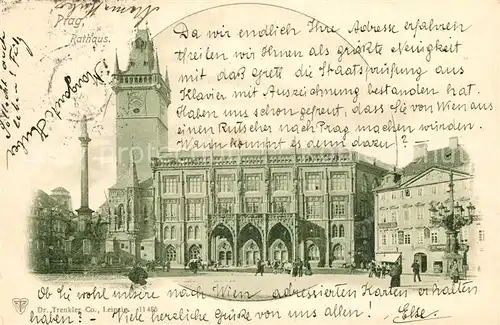 Prag,
Rathhaus.
Da wir endlich Ihre Adresse erfahren
theilen wir Ihnen als größte Neuigkeit
mit daß Grete die Staatsprüfung aus
Klavier mit Auszeichnung bestanden hat.
Haben uns schon gefreut, dass Sie von Wien aus
einen Rutscher nach Prag machen würden.
Wann kommt es denn dazu?
Ob Sie wohl unsere nach Wien adressierten Karten erhalten
haben? - Viele herzliche Grüße von uns allen! Else.
Dr. Trenkler Co., Leipzig. 11468